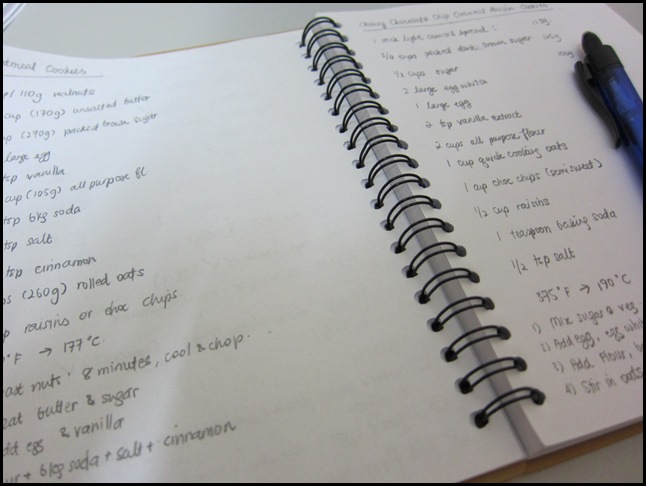 Cookies
110g walnuts
cup (170g) unsalted butter
(270g) packed brown sugar
large egg
tsp vanilla
cup (105g) all purpose fl
tsp bkg soda
tsp salt
tsp cinnamon
(260g) rolled oats
raisins or choc chips
°F → 177°C
nuts: 8 minutes, cool & chop.
butter & sugar
egg & vanilla
+ bkg soda + salt + cinnamon
Chewy Chocolate Chip Oatmeal Raisin Cookies
1 stick light spread :
3/4 cups packed dark brown sugar
1/2 cups sugar
2 large egg whites
1 large egg
2 tsp vanilla extract
2 cups all purpose flour
1 cup quick cooking oats
1 cup choc chips (semisweet)
1/2 cup raisins
1 teaspoon baking soda
1/2 tsp salt
375°F → 190°C
1) Mix sugar & veg
2) Add egg, egg whi
3) Add flour,
4) Stir in oats